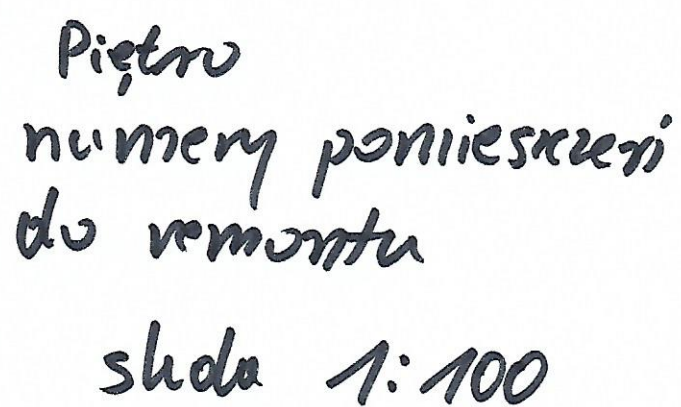 Piętro
numery pomieszczeń
do remontu
skala 1:100